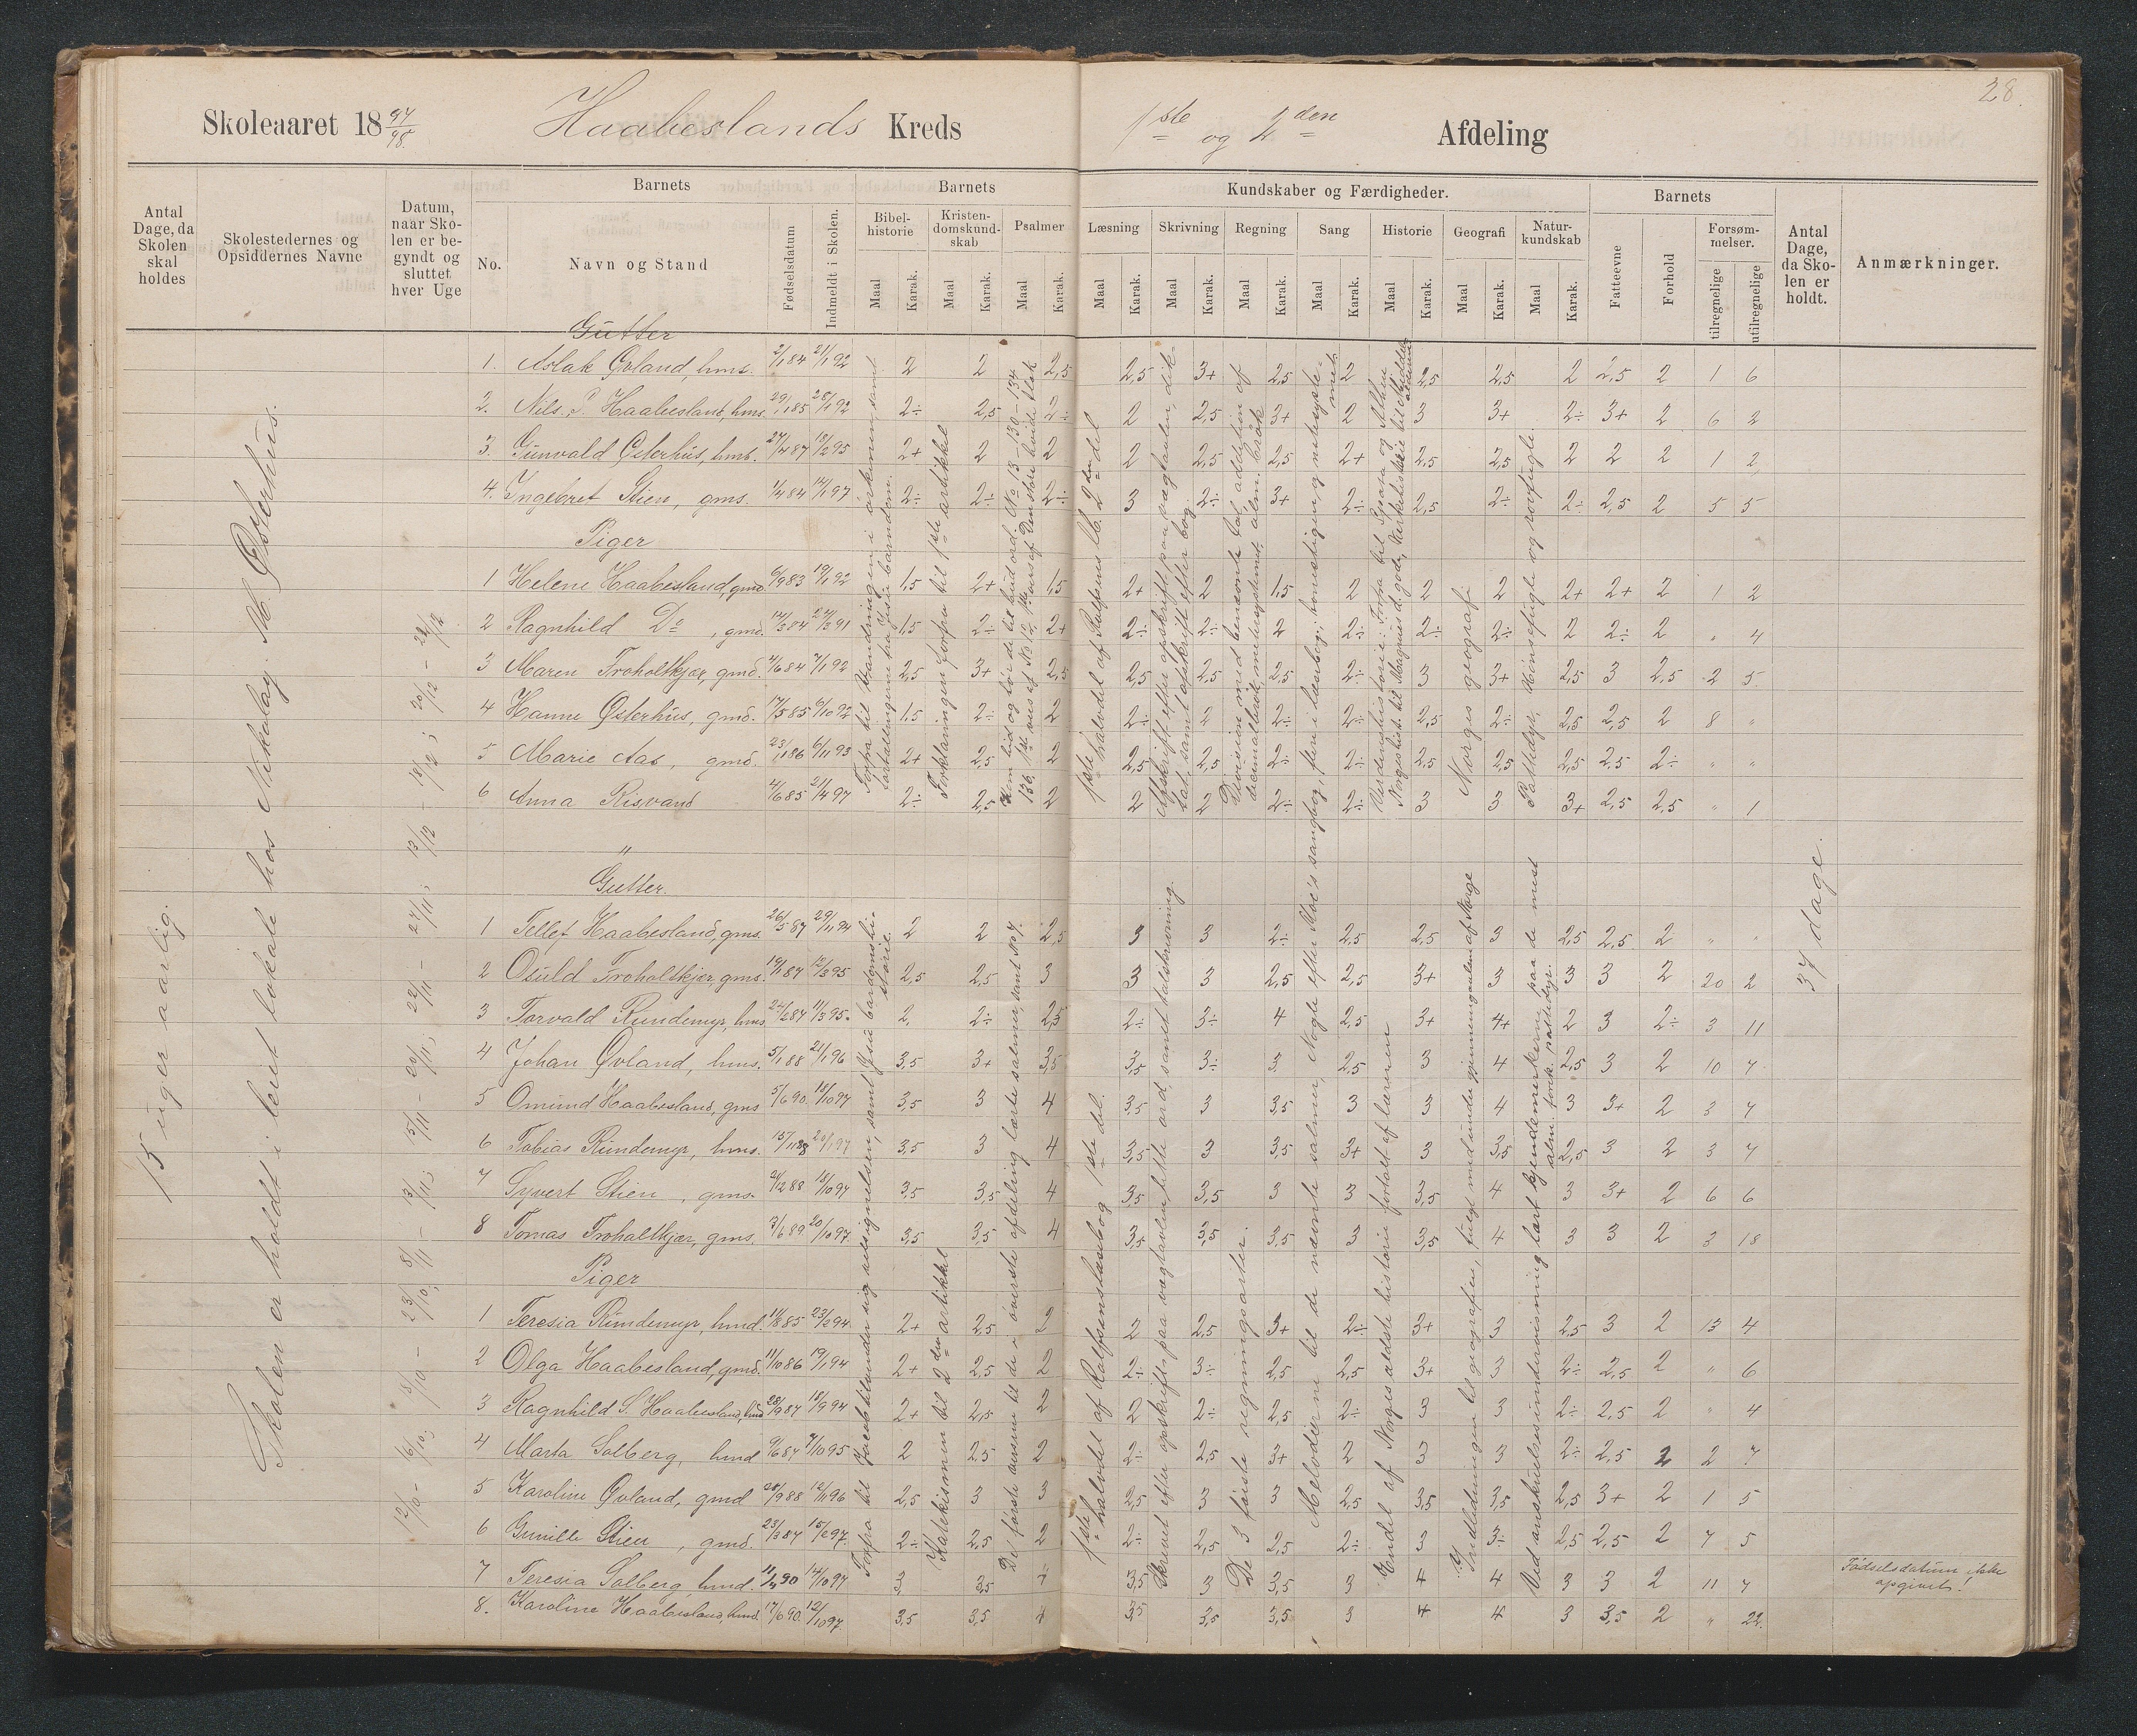 28.
Skoleaaret 18 97/98. Haabeslands Kreds 1ste og 2den Afdeling
Antal Dage, da Skolen skal holdes
Skolestedernes og Opsiddernes Navne
Datum, naar Skolen er begyndt og sluttet hver Uge
Barnets
No.
Navn og Stand
Fødselsdatum
Indmeldt i Skolen.
Barnets Kundskaber og Færdigheder.
Bibelhistorie Maal Karak.
Kristendomskundskab Maal Karak.
Psalmer Maal Karak.
Læsning Maal Karak.
Skrivning Maal Karak.
Regning Maal Karak.
Sang Maal Karak.
Historie Maal Karak.
Geografi Maal Karak.
Naturkundskab Maal Karak.
Barnets
Fatteevne
Forhold
Forsømmelser. tilregnelige utilregnelige
Antal Dage, da Skolen er holdt.
Anmærkninger.
15 uger aarlig.
Skolen er holdt i leiet lokale hos Nikolay. M. Østerhus.
12/10 - 16/10; 18/10 - 23/10; 8/11 - 13/11; 15/11 - 20/11; 22/11 - 27/11; 13/12 - 18/12; 20/12 - 22/12
Gutter
1. Aslak Øvland, hms. 2/1 84 21/1 92 2 2 2,5 2,5 3+ 2,5 2 2,5 2,5 2 2,5 2 1 6
2. Nils. P. Haabesland, hms. 29/1 85 28/1 92 2÷ 2,5 2÷ 2 2,5 3+ 2 3 3+ 2÷ 3+ 2 6 2
3. Gunvald Østerhus, hms. 27/4 87 18/2 95 2+ 2 2 2 2,5 2,5 2+ 2,5 2,5 2 2 2 1 2
4. Ingebret Stien, gms. 1/4 84 14/1 97 2÷ 2÷ 2÷ 3 2÷ 3+ 2÷ 2,5 2÷ 2÷ 2,5 2 5 5
Piger
1 Helene Haabesland, gmd. 6/9 83 19/1 92 1,5 2+ 1,5 2+ 2 1,5 2 2 2 2+ 2+ 2 1 2
2 Ragnhild Do, gmd. 14/3 84 24/3 91 1,5 2÷ 2+ 2÷ 2÷ 2 2÷ 2÷ 2÷ 2 2÷ 2 " 4
3 Maren Troholtkjær, gmd. 4/6 84 7/1 92 2,5 3+ 2,5 2,5 2,5 2,5 2÷ 3 3+ 2,5 3 2,5 2 5
4 Hanne Østerhus, gmd. 17/5 85 6/10 92 1,5 2÷ 2 2÷ 2 2÷ 2÷ 2,5 2÷ 2,5 2,5 2 8 "
5 Marie Aas, gmd. 23/1 86 6/11 93 2+ 2,5 2 2,5 2,5 2÷ 2÷ 2,5 2,5 2,5 2,5 2÷ " "
6 Anna Risvand 4/6 85 21/4 97 2÷ 2,5 2 2 2 2÷ 2÷ 3 3 3+ 2,5 2,5 " 1
"
Forfra til Vandringen i ørkenen samt fortællingerne fra Jesu barndom.
Forklaringen forfra til 1ste artikkel
1ste halvdel af Rolfsens lb. 2den del
Norges geografi
Pattedyr, Hønsefugle og rovfugle.
Gutter.
1 Tellef Haabesland, gms. 26/5 87 29/11 94 2 2 2,5 3 3 2÷ 2,5 2,5 3 2,5 2,5 2 " "
2 Osuld Troholtkjær, gms. 19/1 87 12/3 95 2,5 2,5 3 3 3 2,5 2,5 3+ 3 3 3 2 20 2
3 Torvald Rundemyr, hms 24/2 87 11/3 95 2, 2÷ 2,5 2÷ 3÷ 4 2,5 3+ 4+ 2 3 2÷ 3 11
4 Johan Øvland, hms. 5/1 88 21/1 96 3,5 3+ 3,5 3,5 3÷ 3 2,5 3 4 2,5 3 2 10 7
5 Omund Haabesland, gms 5/6 90. 18/10 97 3,5 3 4 3,5 3 3,5 3 3 4 3 3+ 2 3 7
6 Tobias Rundemyr, hms. 15/11 88 20/1 97 3,5 3 4 3,5 3 3,5 3+ 3 3,5 2,5 3 2 3 7
7 Syvert Stien, gms. 21/2 88 18/10 97 3,5 3,5 4 3,5 3,5 3 3 3,5 4 3 3+ 2 6 6
8 Tomas Troholtkjær, gms. 3/6 89. 20/10 97 3,5 3,5 4 3,5 3,5 3,5 3 3,5 4 3 3 2 3 18
Piger
1 Teresia Rundemyr, hmd. 11/8 85 23/2 94 2+ 2,5 2 2 2,5 3+ 2÷ 3+ 3 2,5 3 2 13 4
2 Olga Haabesland, gmd. 11/10 86 19/1 94 2+ 2,5 2 2÷ 3÷ 2,5 2,5 3+ 3 2÷ 2,5 2 " 6
3 Ragnhild S. Haabesland, hmd 28/9 87 18/9 94 2+ 2,5 2 2 2÷ 2,5 2÷ 3 3 2÷ 2,5 2 " 4
4 Marta Solberg, hmd 9/6 87 7/10 95 2 2,5 2 2÷ 2,5 3+ 2 3 3 2÷ 2,5 2 2 7
5 Karoline Øvland, gmd 20/9 88 12/11 96 2,5 3 3 2,5 3 3 2,5 3,5 3,5 2,5 3+ 2 1 5
6 Gunille Stien, gmd. 23/3 87 15/2 97. 2÷ 2,5 2 2÷ 2,5 2,5 2÷ 3 3÷ 2,5 2,5 2 7 5
7 Teresia Solberg, hmd. 11/4 90 14/10 97 3 3,5 4 3,5 3 3,5 3 4 4 3 3 2 11 7 Fødselsdatum ikke opgivet!
8. Karoline Haabesland, hmd. 17/6 90. 12/10 97. 3,5 3,5 4 3,5 3,5 3,5 3 4 4 3 3,5 2 " 22.
Katekismen til 2den artikkel
1ste halvdel af Rolfsens læsebog 1ste del.
De 3 første regningsarter.
Endel af Norges ældste historie fortalt af læreren
37 dage.